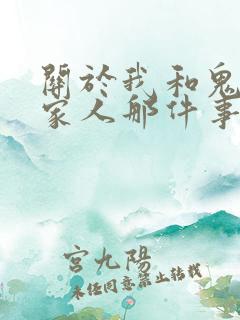 關於我和鬼
家人那件事
宮九陽
未經同意禁止轉載